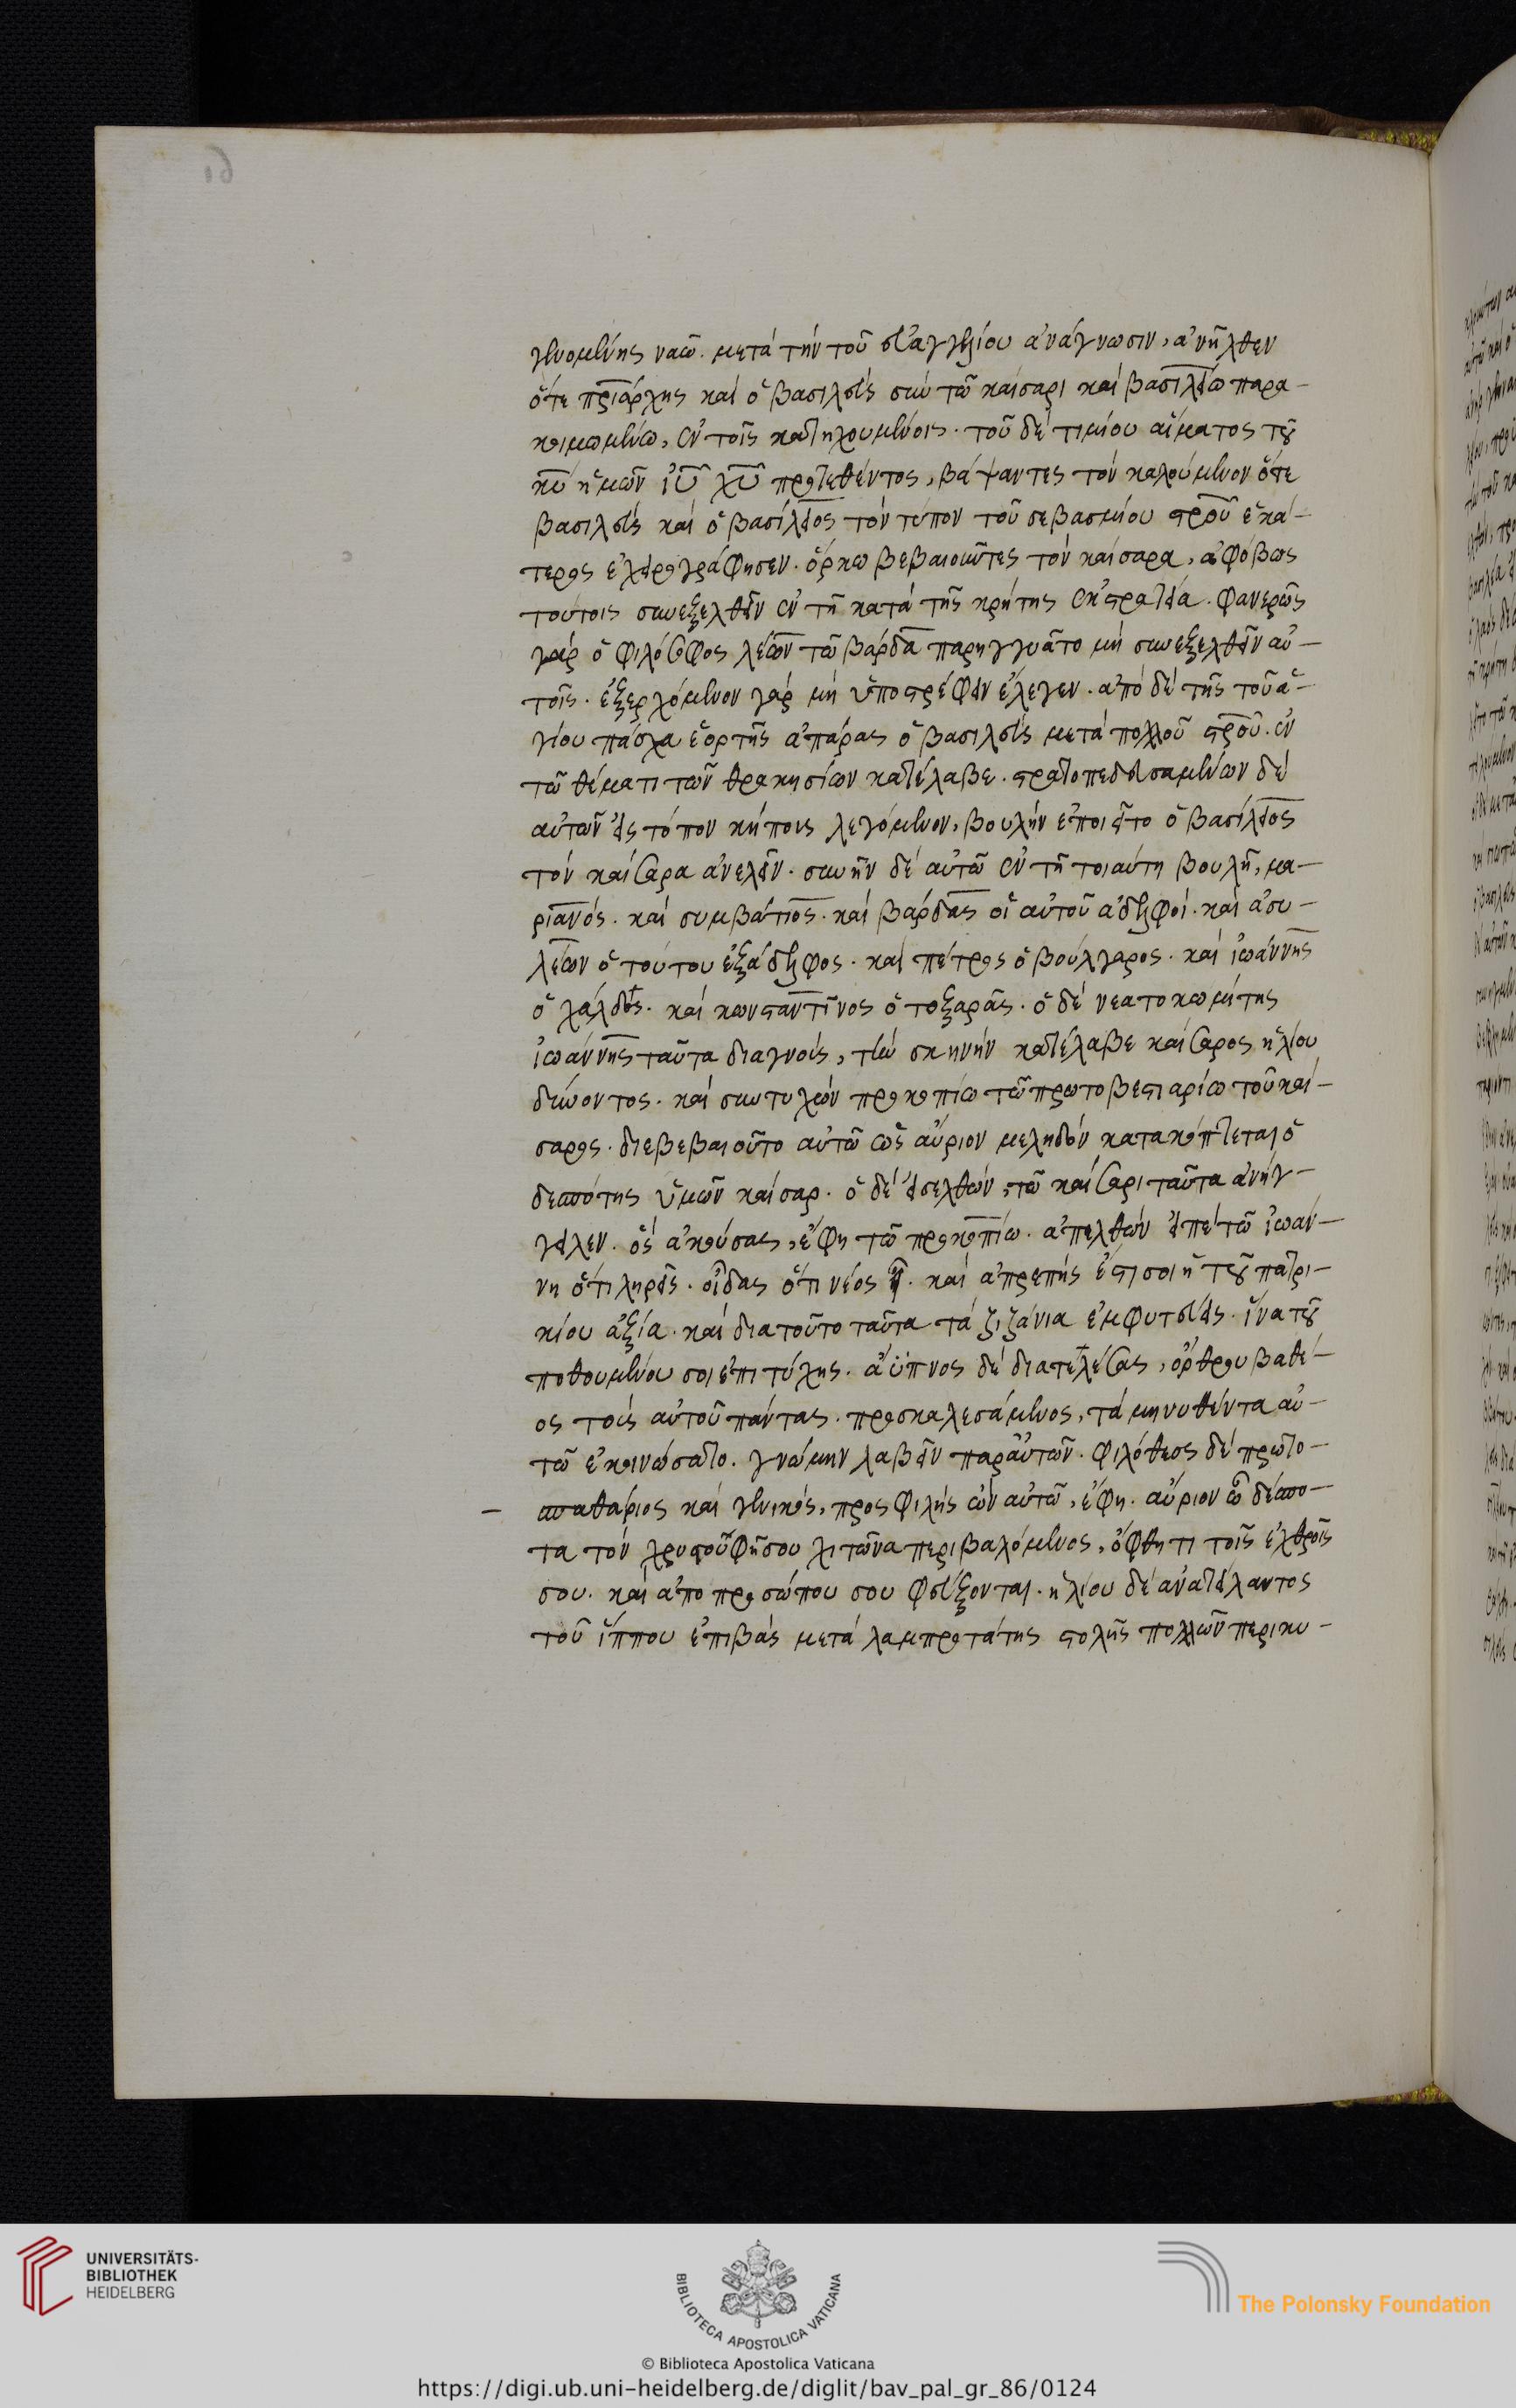 γενομένης ναῶ. μετὰ τὴν τοῦ εὐαγγελίου ἀνάγνωσιν, ἀνῆλθεν
ὅτε πριάρχης καὶ ὁ βασιλεὺς σὺν τῶ καίσαρι καὶ βασιλείω παρα-
κοιμωμένω, ἐν τοῖς κατηχουμένοις. τοῦ δὲ τιμίου αἵματος τοῦ
κυ ἡμῶν ἰυ χυ προτεθέντος, βάψαντες τὸν κάλουμενον ὅτε
βασιλεὺς καὶ ὁ βασίλειος τὸν τύπον τοῦ σεβασμίου στροῦ ἑκά-
τερος ἐχειρογράφησεν. ὅρκω βεβαιοῦντες τὸν καίσαρα, ἀφόβως
τούτοις συνεξελθεῖν ἐν τῆ κατὰ τῆς κρήτης ἐκστρατεία. φανερῶς
γὰρ ὁ φιλόσοφος λέων τῶ βάρδα παρηγγυᾶτο μὴ συνεξελθεῖν αὐ-
τοῖς. ἐξερχόμενον γὰρ μὴ ὑποστρέφειν ἔλεγεν. ἀπὸ δὲ τῆς τοῦ ἁ-
γίου πάσχα ἑορτῆς ἀπάρας ὁ βασιλεὺς μετὰ πολλοῦ στροῦ. ἐν
τῶ θέματι τῶν θρακησίων κατέλαβε. στρατοπεδευσαμένων δὲ
αὐτῶν εἰς τόπον κήπους λεγόμενον, βουλὴν ἐποιεῖτο ὁ βασίλειος
τὸν καίσαρα ἀνελεῖν. συνῆν δὲ αὐτῶ ἐν τῆ τοιαύτη βουλῆ, μα-
ριανός. καὶ συμβάτιος. καὶ βάρδας οἱ αὐτοῦ ἀδελφοί. καὶ ἀσυ-
λέων ὁ τούτου ἐξάδελφος. καὶ πέτρος ὁ βούλγαρος. καὶ ἰωάννης
ὁ χάλδος. καὶ κωνσταντῖνος ὁ τοξαρᾶς. ὁ δὲ νεατοκωμήτης
ἰωάννης ταῦτα διαγνοὺς, τὴν σκηνὴν κατέλαβε καίσαρος ἡλίου
δύνοντος. καὶ συντυχὼν προκοπίω τῶ πρωτοβεστιαρίω τοῦ καί-
σαρος. διεβεβαιοῦτο αὐτῶ ὡς αὔριον μεληδὸν κατακόπτεται ὁ
δεσπότης ὑμῶν καίσαρ. ὁ δὲ εἰσελθὼν, τῶ καίσαρι ταῦτα ἀνήγ-
γειλεν. ὃς ἀκούσας, ἔφη τῶ προκοπίω. ἀπελθὼν εἰπὲ τῶ ἰωάν-
νη ὅτι ληρεῖς. οἶδας ὅτι νέος εἶ. καὶ ἀπρεπής ἐστι σοι ἡ τοῦ πατρι-
κίου ἀξία. καὶ διατοῦτο ταῦτα τὰ ζιζάνια ἐμφυτεύεις. ἵνα τοῦ
ποθουμένου σοι ἐπιτύχης. ἄϋπνος δὲ διατελέσας, ὄρθρου βαθέ-
ος τοὺς αὐτοῦ πάντας. προσκαλεσάμενος, τὰ μηνυθέντα αὐ-
τῶ ἐκοινώσατο. γνώμην λαβεῖν παρ' αὐτῶν. φιλόθεος δὲ πρωτο-
σπαθάριος καὶ γενικὸς, προσφιλὴς ὢν αὐτῶ, ἔφη. αὔριον ὦ δέσπο-
τα τὸν χρυσοϋφῆ σου χιτῶνα περιβαλόμενος, ὄφθητι τοῖς ἐχθροῖς
σου. καὶ ἀπὸ προσώπου σου φεύξονται. ἡλίου δὲ ἀνατείλαντος
τοῦ ἵππου ἐπιβὰς μετὰ λαμπροτάτης στολῆς πολλῶν περικυ-
UNIVERSITÄTS-
BIBLIOTHEK
HEIDELBERG
BIBLIOTECA APOSTOLICA VATICANA
© Biblioteca Apostolica Vaticana
The Polonsky Foundation
https://digi.ub.uni-heidelberg.de/diglit/bav_pal_gr_86/0124